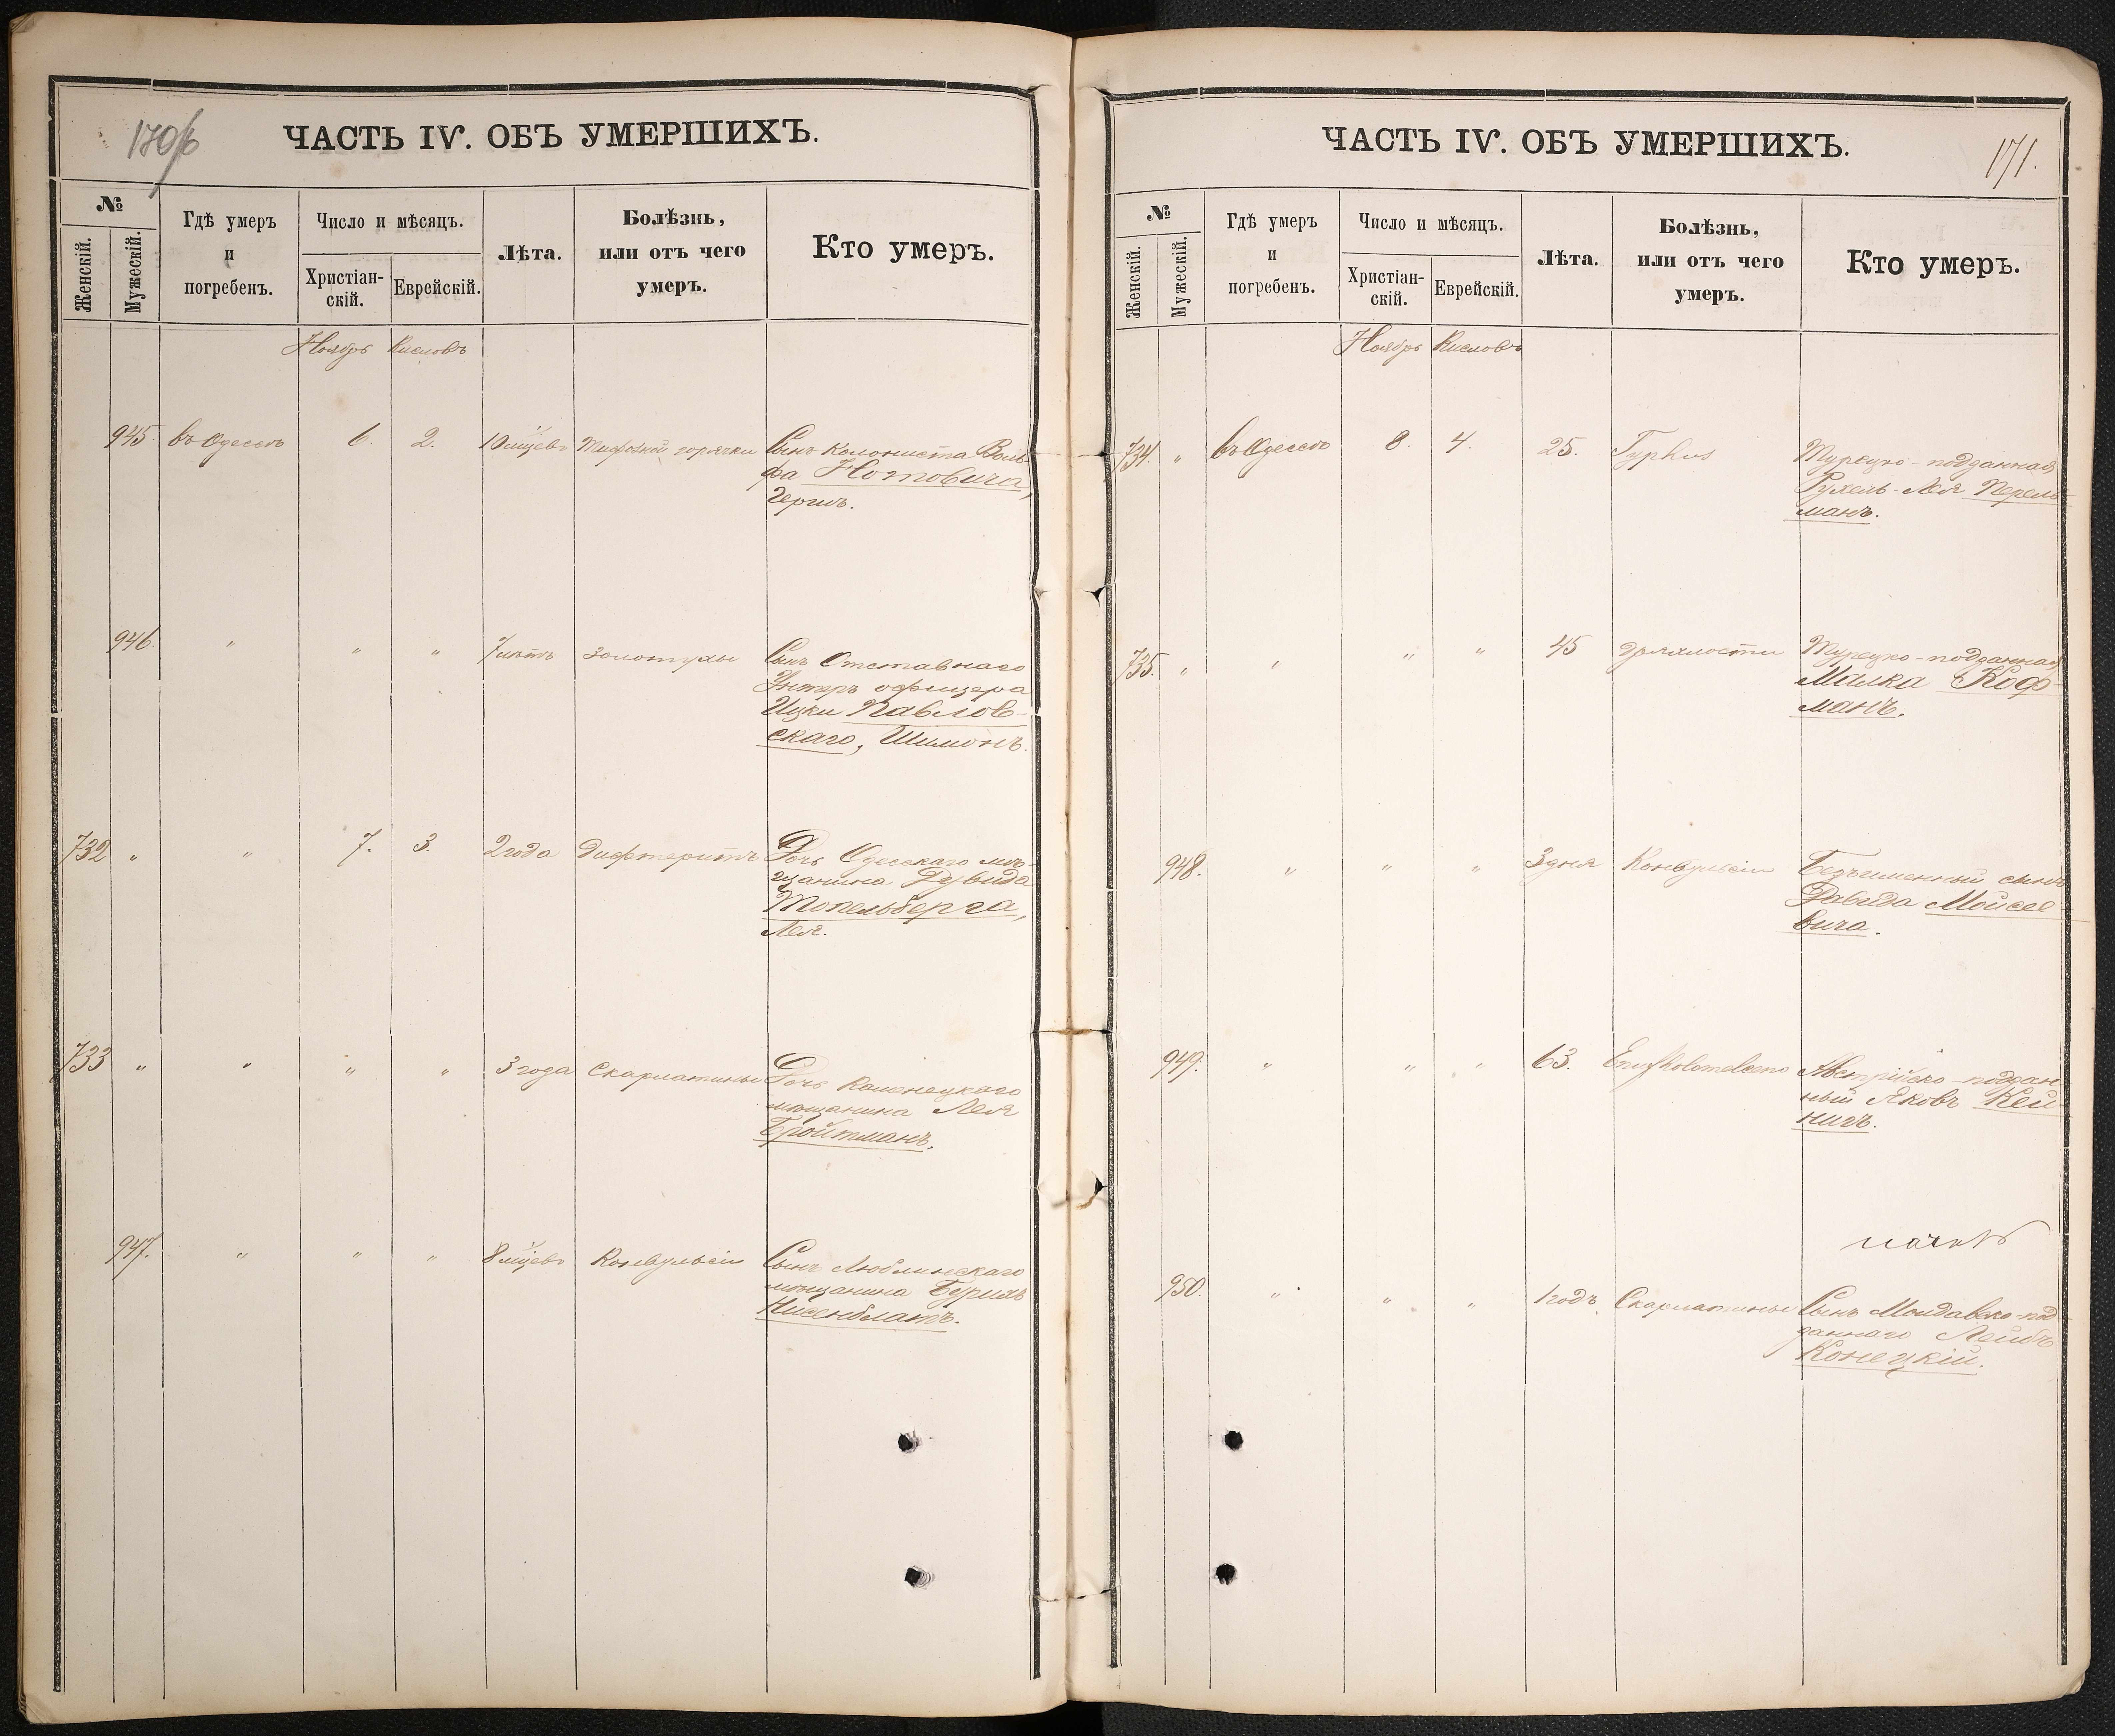 170/б
ЧАСТЬ IV. ОБЪ УМЕРШИХЪ.
№
Женскій.
Мужескій.
Гдѣ умеръ
и
погребенъ.
Число и мѣсяцъ.
Христіан-
скій.
Еврейскій.
Лѣта.
Болѣзнь,
или отъ чего
умеръ.
Кто умеръ.
Ноябрь Кисловъ
945. въ Одессѣ 6. 2. 10 мцевъ Тифозной горячки Сынъ колониста Воль-
фа Нотовича,
Гершъ.
946. " " " 7 лѣтъ Золотухи Сынъ Отставнаго
Унтеръ офицера
Ицки Павлов-
скаго, Шимонъ.
732 " " 7. 3. 2 года Дифтеритъ Дочь Одесскаго мѣ-
щанина Дувида
Топельберга,
Лея.
733 " " " " 3 года Скарлатины Дочь Каменецкаго
мѣщанина Лея
Бройтманъ.
947. " " " 8 мцевъ Конвульсіи Сынъ Люблинскаго
мѣщанина Бурихъ
Нисенблатъ.
ЧАСТЬ IV. ОБЪ УМЕРШИХЪ.
171.
№
Женскій.
Мужескій.
Гдѣ умеръ
и
погребенъ.
Число и мѣсяцъ.
Христіан-
скій.
Еврейскій.
Лѣта.
Болѣзнь,
или отъ чего
умеръ.
Кто умеръ.
Ноябрь Кисловъ
734. " въ Одессѣ 8. 4. 25. Typhus Турецко-подданная
Рухель-Лея Перель-
манъ.
735. " " " " 45 дряхлости Турецко-подданная
Малка Коф-
манъ.
948. " " " 3 дня Конвульсіи Безъименный сынъ
Давида Мойсее-
вича.
949. " " " 63. Австрійско-поддан-
ный Яковъ Кей-
нигъ.
950. " " " 1 годъ Скарлатины Сынъ Молдавско-под-
даннаго Лейбъ
Конецкій.